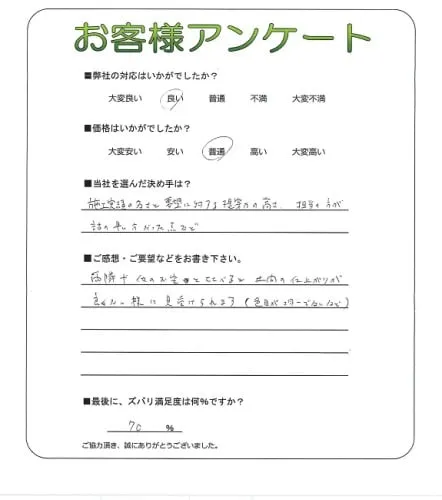 お客様アンケート
■弊社の対応はいかがでしたか？
大変良い 良い 普通 不満 大変不満
■価格はいかがでしたか？
大変安い 安い 普通 高い 大変高い
■当社を選んだ決め手は？
施工実績の多さと要望に対する提案力の高さ、担当の方が
話の
■ご感想・ご要望などをお書き下さい。
と比べると 仕上がりが
様に見受けられます（色目が など）
■最後に、ズバリ満足度は何％ですか？
70 ％
ご協力頂き、誠にありがとうございました。